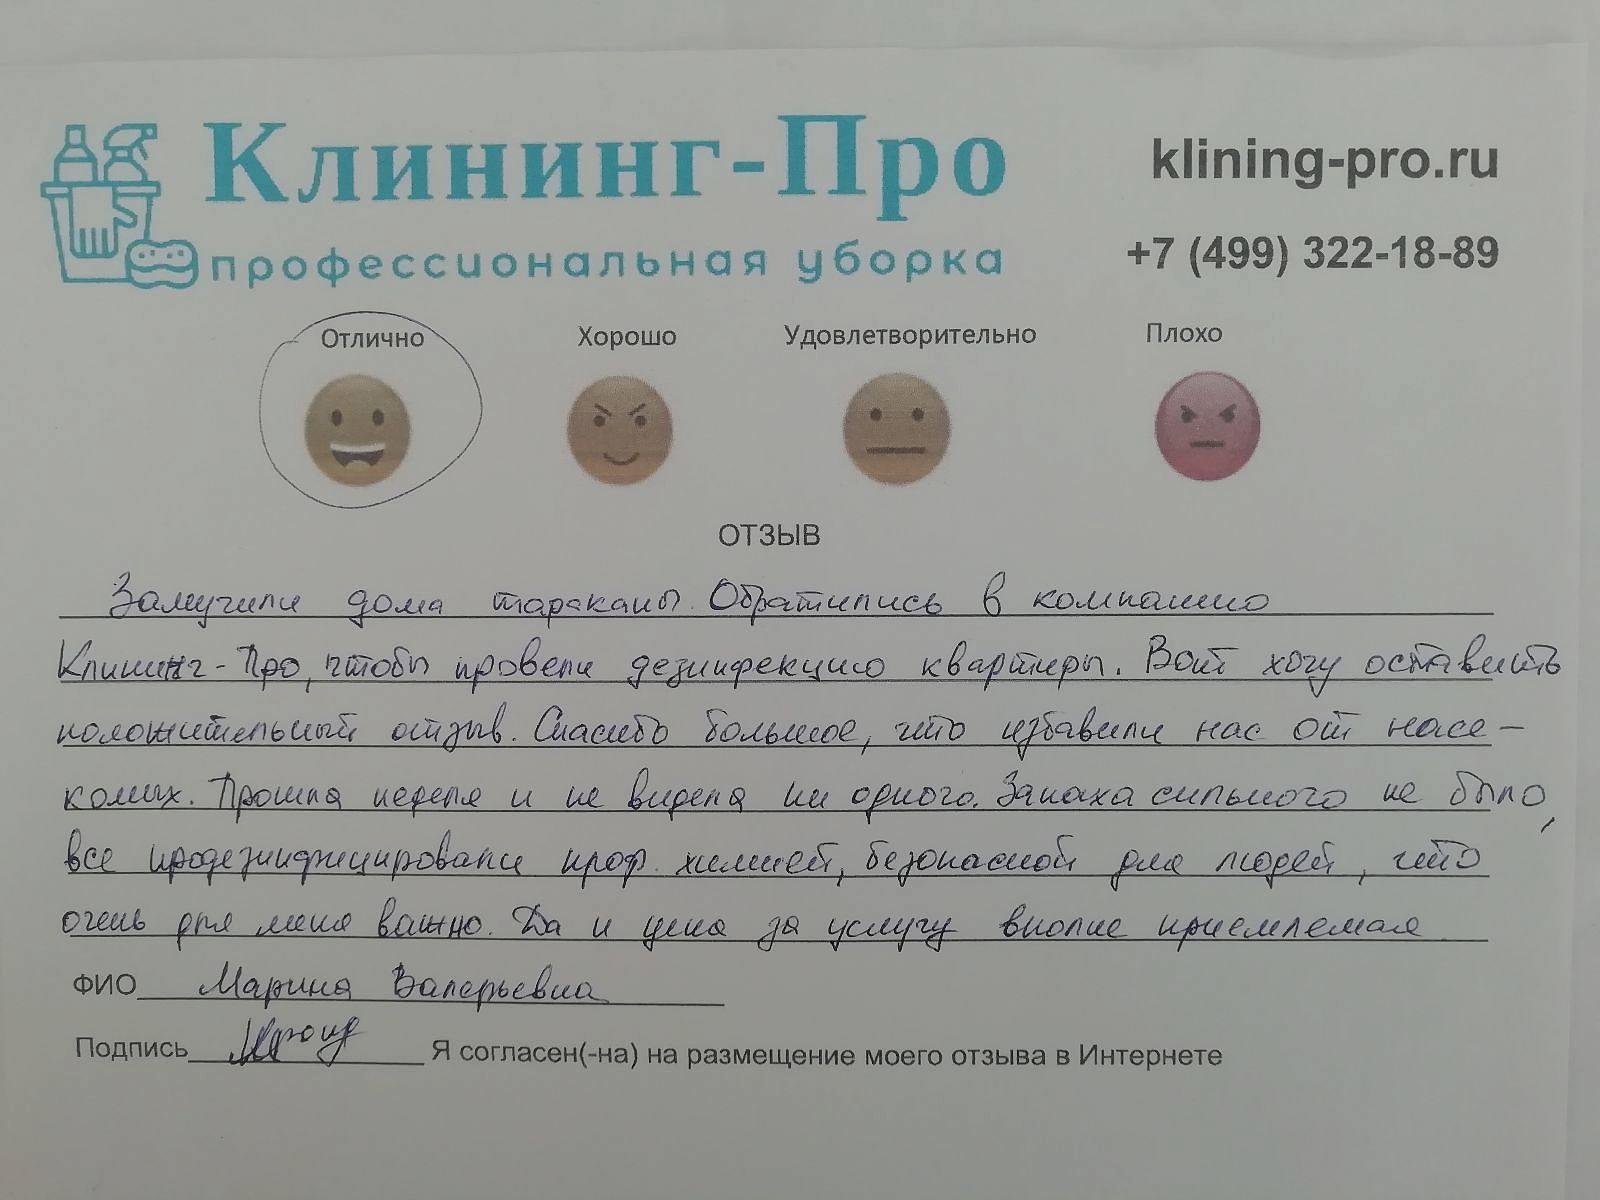 Клининг-Про
профессиональная уборка
klining-pro.ru
+7 (499) 322-18-89
Отлично Хорошо Удовлетворительно Плохо
ОТЗЫВ
Замучили дома тараканы. Обратились в компанию
Клининг-Про, чтобы провели дезинфекцию квартиры. Вот хочу оставить
положительный отзыв. Спасибо большое, что избавили нас от насе-
комых. Прошла неделя и не видела ни одного. Запаха сильного не было,
все продезинфицировали проф. химией, безопасной для людей, что
очень для меня важно. Да и цена за услугу вполне приемлемая
ФИО Марина Валерьевна
Подпись Я согласен(-на) на размещение моего отзыва в Интернете